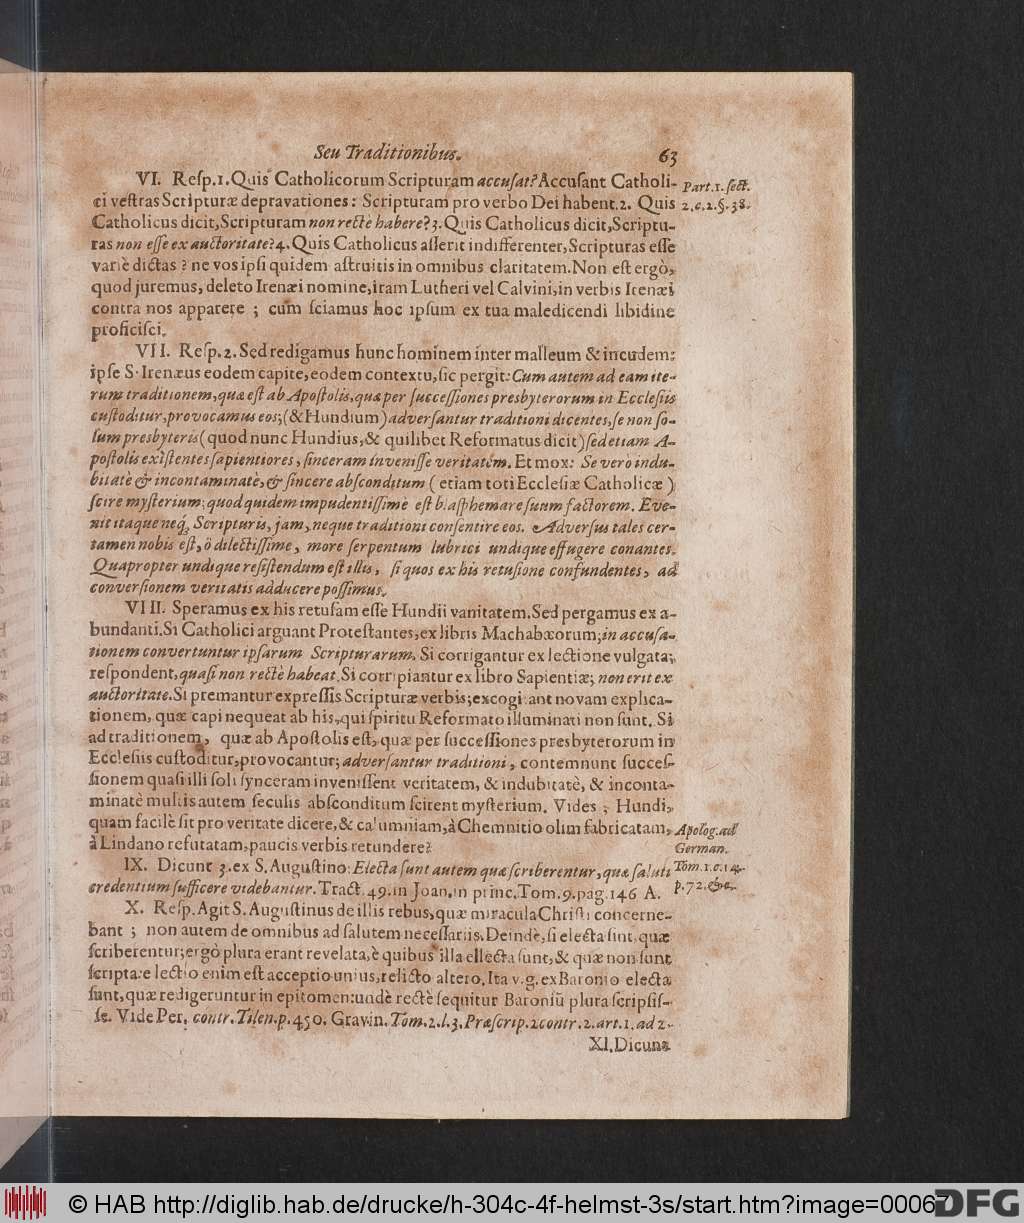 Seu Traditionibus. 63
VI. Reſp. 1. Quis Catholicorum Scripturam accuſat? Accuſant Catholi-
ci veſtras Scripturæ depravationes: Scripturam pro verbo Dei habent. 2. Quis
Catholicus dicit, Scripturam non rectè habere? 3. Quis Catholicus dicit, Scriptu-
ras non eſſe ex auctoritate? 4. Quis Catholicus aſſerit indifferenter, Scripturas eſſe
variè dictas? ne vos ipſi quidem aſtruitis in omnibus claritatem. Non eſt ergò,
quod juremus, deleto Irenæi nomine, iram Lutheri vel Calvini, in verbis Irenæi
contra nos apparere; cùm ſciamus hoc ipſum ex tua maledicendi libidine
proficiſci.
Part. 1. ſect.
2. c. 2. §. 38.
VII. Reſp. 2. Sed redigamus hunc hominem inter malleum & incudem:
ipſe S. Irenæus eodem capite, eodem contextu, ſic pergit: Cum autem ad eam ite-
rum traditionem, quæ eſt ab Apoſtolis, quæ per ſucceſſiones presbyterorum in Eccleſiis
cuſtoditur, provocamus eos; (& Hundium) adverſantur traditioni dicentes, ſe non ſo-
lùm presbyteris (quod nunc Hundius, & quilibet Reformatus dicit) ſed etiam A-
poſtolis exiſtentes ſapientiores, ſinceram inveniſſe veritatem. Et mox: Se vero indu-
bitatè & incontaminatè, & ſincere abſconditum (etiam toti Eccleſiæ Catholicæ)
ſcire myſterium; quod quidem impudentiſſimè eſt blaſphemare ſuum factorem. Eve-
nit itaque neq; Scripturis, jam, neque traditioni conſentire eos. Adverſus tales cer-
tamen nobis eſt, ô dilectiſſime, more ſerpentum lubrici undique effugere conantes.
Quapropter undique reſiſtendum eſt illis, ſi quos ex his retuſione confundentes, ad
converſionem veritatis adducere poſſimus.
VIII. Speramus ex his retuſam eſſe Hundii vanitatem. Sed pergamus ex a-
bundanti. Si Catholici arguant Proteſtantes, ex libris Machabæorum; in accuſa-
tionem convertuntur ipſarum Scripturarum. Si corrigantur ex lectione vulgata;
reſpondent, quaſi non rectè habeat. Si corripiantur ex libro Sapientiæ; non erit ex
auctoritate. Si premantur expreſſis Scripturæ verbis; excogitant novam explica-
tionem, quæ capi nequeat ab his, qui ſpiritu Reformato illuminati non ſunt. Si
ad traditionem, quæ ab Apoſtolis eſt, quæ per ſucceſſiones presbyterorum in
Eccleſiis cuſtoditur, provocantur; adverſantur traditioni, contemnunt ſucceſ-
ſionem quaſi illi ſoli ſynceram inveniſſent veritatem, & indubitatè, & inconta-
minatè multis autem ſeculis abſconditum ſcirent myſterium. Vides, Hundi,
quam facilè ſit pro veritate dicere, & calumniam, à Chemnitio olim fabricatam,
à Lindano refutatam, paucis verbis retundere?
Apolog. ad
German.
Tom. 1. c. 14.
p. 72. &c.
IX. Dicunt 3. ex S. Auguſtino: Electa ſunt autem quæ ſcriberentur, quæ ſaluti
credentium ſufficere videbantur. Tract. 49. in Joan. in princ. Tom. 9. pag. 146 A.
X. Reſp. Agit S. Auguſtinus de illis rebus, quæ miracula Chriſti concerne-
bant; non autem de omnibus ad ſalutem neceſſariis. Deindè, ſi electa ſint, quæ
ſcriberentur; ergò plura erant revelata, è quibus illa ellecta ſunt, & quæ non ſunt
ſcripta: e lectio enim eſt acceptio unius, relicto altero. Ita v. g. ex Baronio electa
ſunt, quæ rediguruntur in epitomen: undè rectè ſequitur Baroniũ plura ſcripſiſ-
ſe. Vide Per. contr. Tilen. p. 450. Gravin. Tom. 2. l. 3. Præſcrip. 2 contr. 2. art. 1. ad 2.
XI. Dicunt
© HAB http://diglib.hab.de/drucke/h-304c-4f-helmst-3s/start.htm?image=00067
DFG